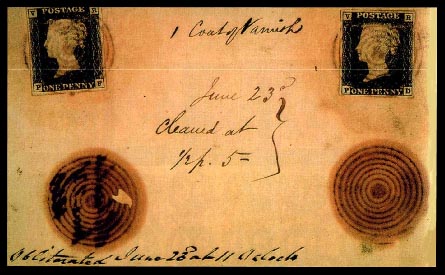 V POSTAGE R
ONE PENNY
V POSTAGE R
ONE PENNY D
1 Coat of Varnish
June 23d
cleaned at
1/2 p. 5 =
Obliterated June 23d at 11 OClock